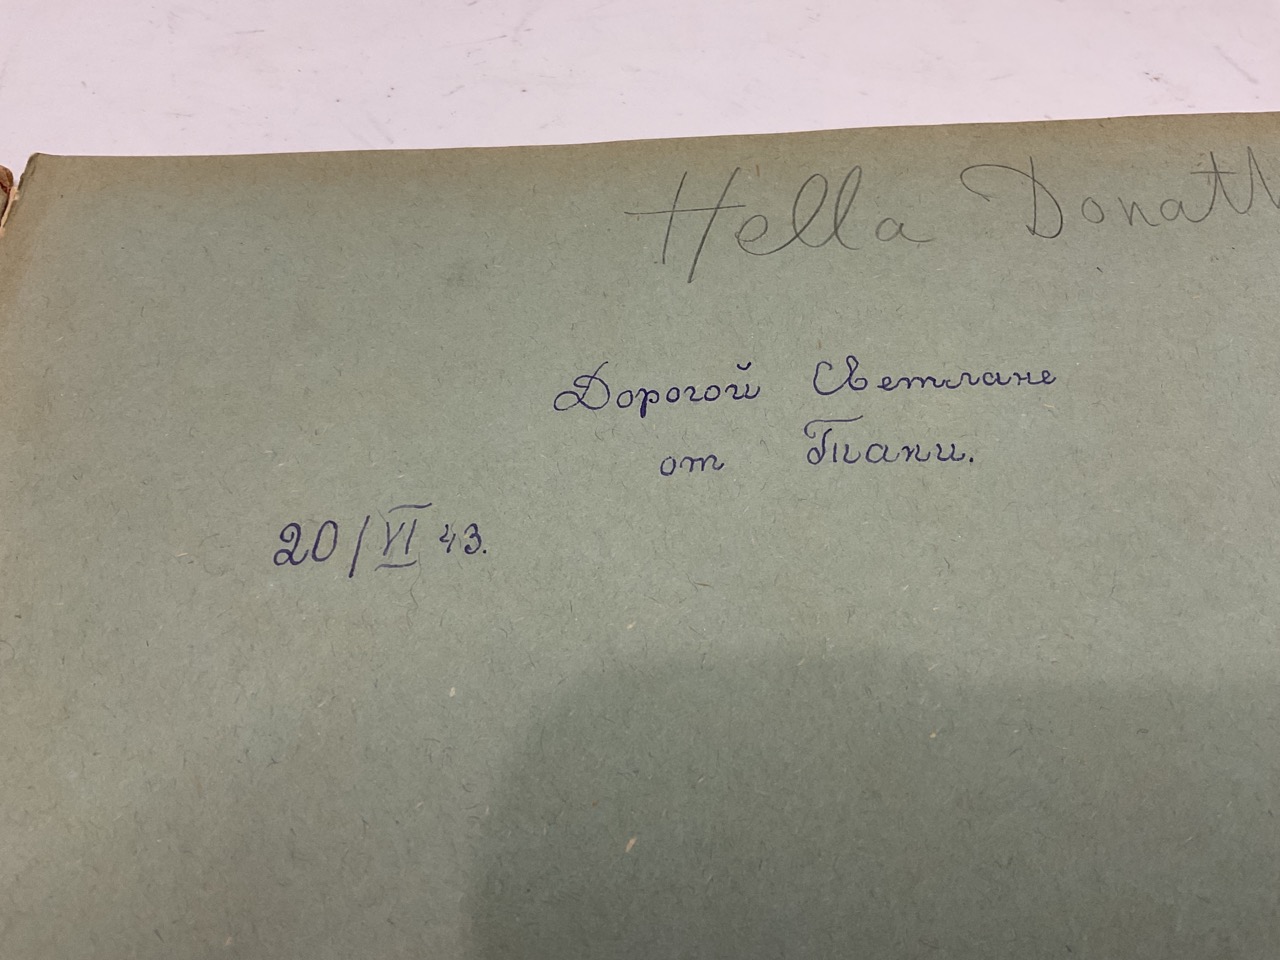 Hella
Дорогой Светлане
от Тани.
20/VI 43.